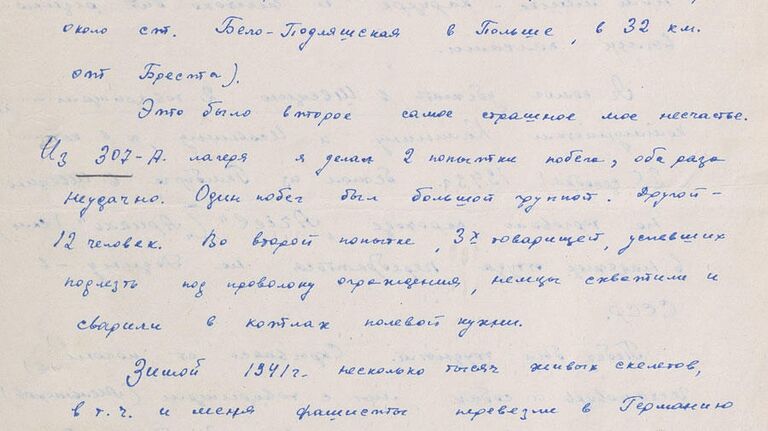 около ст. Бело-Подляшская в Польше, в 32 км.
от Бреста).
Это было второе самое страшное мое несчастье.
Из 307-А. лагеря я делал 2 попытки побега, оба раза
неудачно. Один побег был большой группой. Другой -
12 человек. Во второй попытке, 3х товарищей, успевших
подлезть под проволоку ограждения, немцы схватили и
сварили в котлах полевой кухни.
Зимой 1941г. несколько тысяч живых скелетов,
в т. ч. и меня фашисты перевезли в Германию